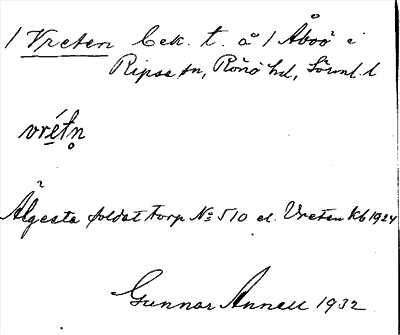 1 Vreten bek. t. å 1 Åboö i
Ripsa sn, Rönö hd, Sörml. l
vrétn̥
Älgesta soldattorp No 510 el. Vreten Kb 1924
Gunnar Annell 1932